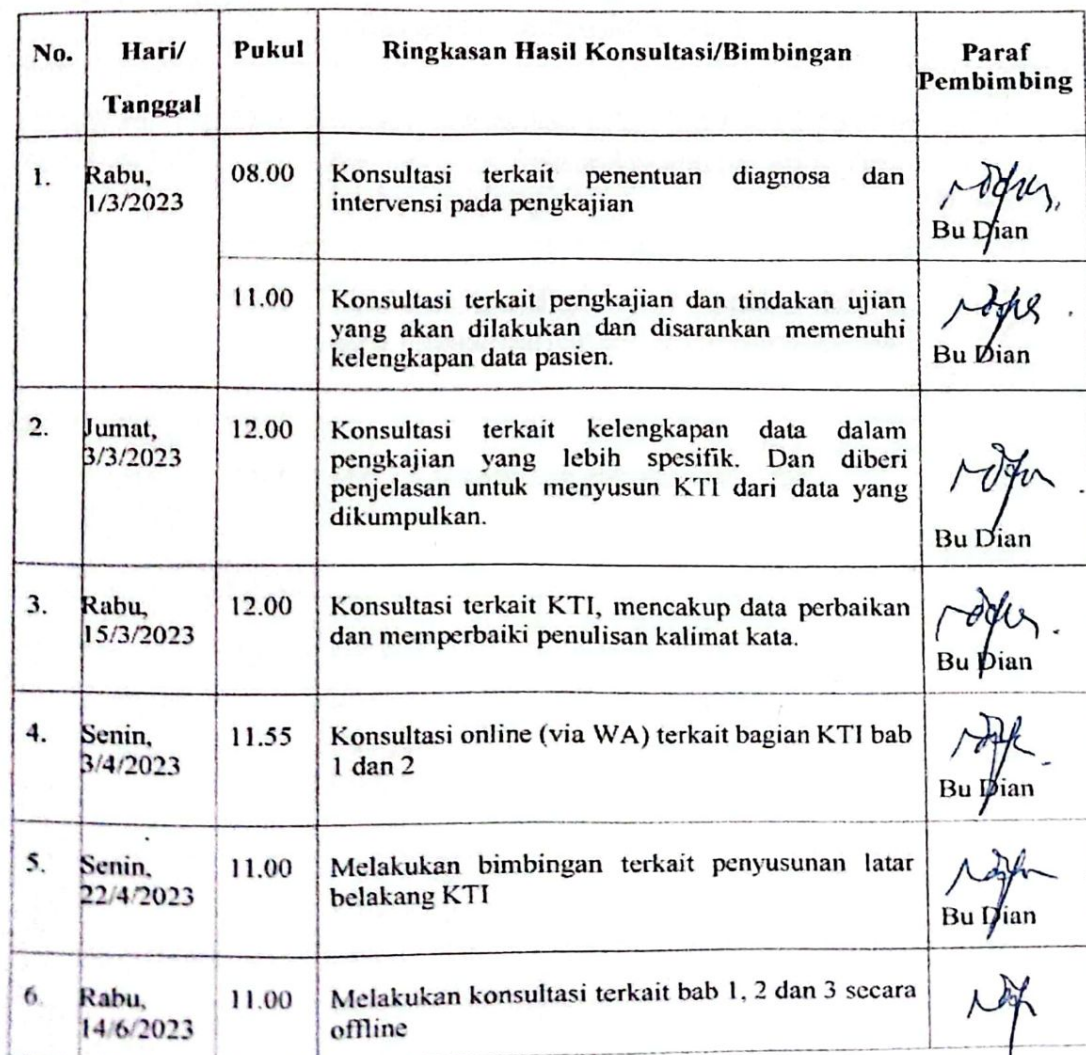 No. Hari/ Pukul Ringkasan Hasil Konsultasi/Bimbingan Paraf
Tanggal Pembimbing
1. Rabu, 08.00 Konsultasi terkait penentuan diagnosa dan
1/3/2023 intervensi pada pengkajian
Bu Dian
11.00 Konsultasi terkait pengkajian dan tindakan ujian
yang akan dilakukan dan disarankan memenuhi
kelengkapan data pasien.
Bu Dian
2. Jumat, 12.00 Konsultasi terkait kelengkapan data dalam
3/3/2023 pengkajian yang lebih spesifik. Dan diberi
penjelasan untuk menyusun KTI dari data yang
dikumpulkan.
Bu Dian
3. Rabu, 12.00 Konsultasi terkait KTI, mencakup data perbaikan
15/3/2023 dan memperbaiki penulisan kalimat kata.
Bu Dian
4. Senin, 11.55 Konsultasi online (via WA) terkait bagian KTI bab
3/4/2023 1 dan 2
Bu Dian
5. Senin, 11.00 Melakukan bimbingan terkait penyusunan latar
22/4/2023 belakang KTI
Bu Dian
6. Rabu, 11.00 Melakukan konsultasi terkait bab 1, 2 dan 3 secara
14/6/2023 offline